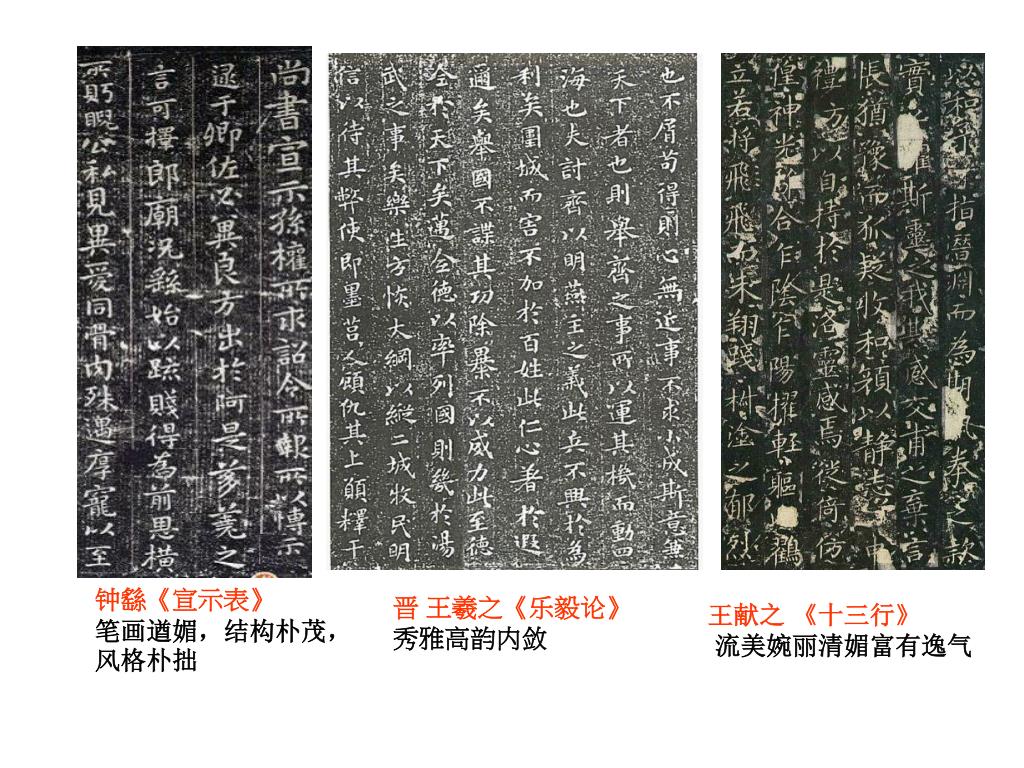 尚書宣示孫權所求詔令所報所以博示
逮于卿佐必冀良方出於阿是芻蕘之
言可擇郎廟況繇始以疏賤得為前恩橫
所盻睨公私見異愛同骨肉殊遇厚寵以至
也不屑苟得則心無近事不求小成斯意兼
天下者也則舉齊之事所以運其機而動四
海也夫討齊以明燕主之義此兵不興於為
利矣圍城而害不加於百姓此仁心著於遐
邇矣舉國不謀其功除暴不以威力此至德
全於天下矣邁全德以率列國則幾於湯
武之事矣樂生方恢大綱以縱二城牧民明
信以待其弊使即墨莒人顧仇其上願釋干
指潛淵而為期
實
斯靈之我
其感交甫之棄言
悵猶豫而狐疑收和顏以靜志
禮方以自持於是洛靈感焉徙倚仿
偟神光
合乍陰乍陽擢輕軀
鶴
立若將飛
未翔踐椒塗之郁烈
钟繇《宣示表》
笔画遒媚，结构朴茂，
风格朴拙
晋 王羲之《乐毅论》
秀雅高韵内敛
王献之 《十三行》
流美婉丽清媚富有逸气